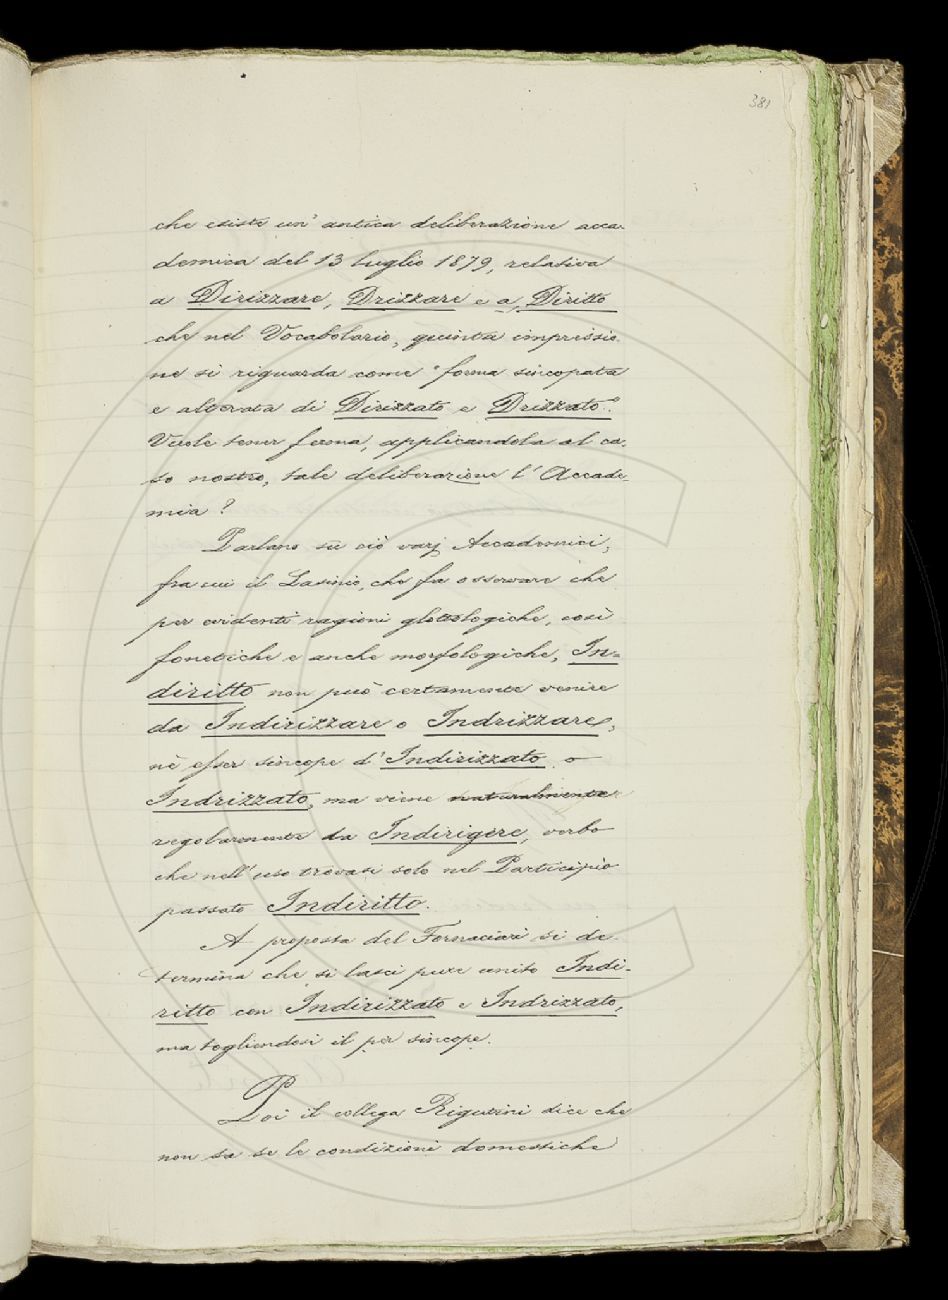 381
che esiste un' antica deliberazione acca-
demica del 13 luglio 1879, relativa
a Dirizzare, Drizzare e a Diritto
che nel Vocabolario, quinta impressio-
ne si riguarda come "forma sincopata
e alterata di Dirizzato e Drizzato".
Vuole tener ferma, applicandola al ca-
so nostro, tale deliberazione l' Accade-
mia?
Parlano su ciò varj Accademici,
fra cui il Lasinio, che fa osservare che
per evidenti ragioni glottologiche, così
fonetiche e anche morfologiche, In-
diritto non può certamente venire
da Indirizzare o Indrizzare,
nè esser sincope d' Indirizzato o
Indrizzato, ma viene naturalmente
regolarmente da Indirigere, verbo
che nell' uso trovasi solo nel Participio
passato Indiritto.
A proposta del Fornaciari si de-
termina che si lasci pure unito Indi-
ritto con Indirizzato e Indrizzato,
ma togliendosi il per sincope.
Poi il collega Rigutini dice che
non sa se le condizioni domestiche